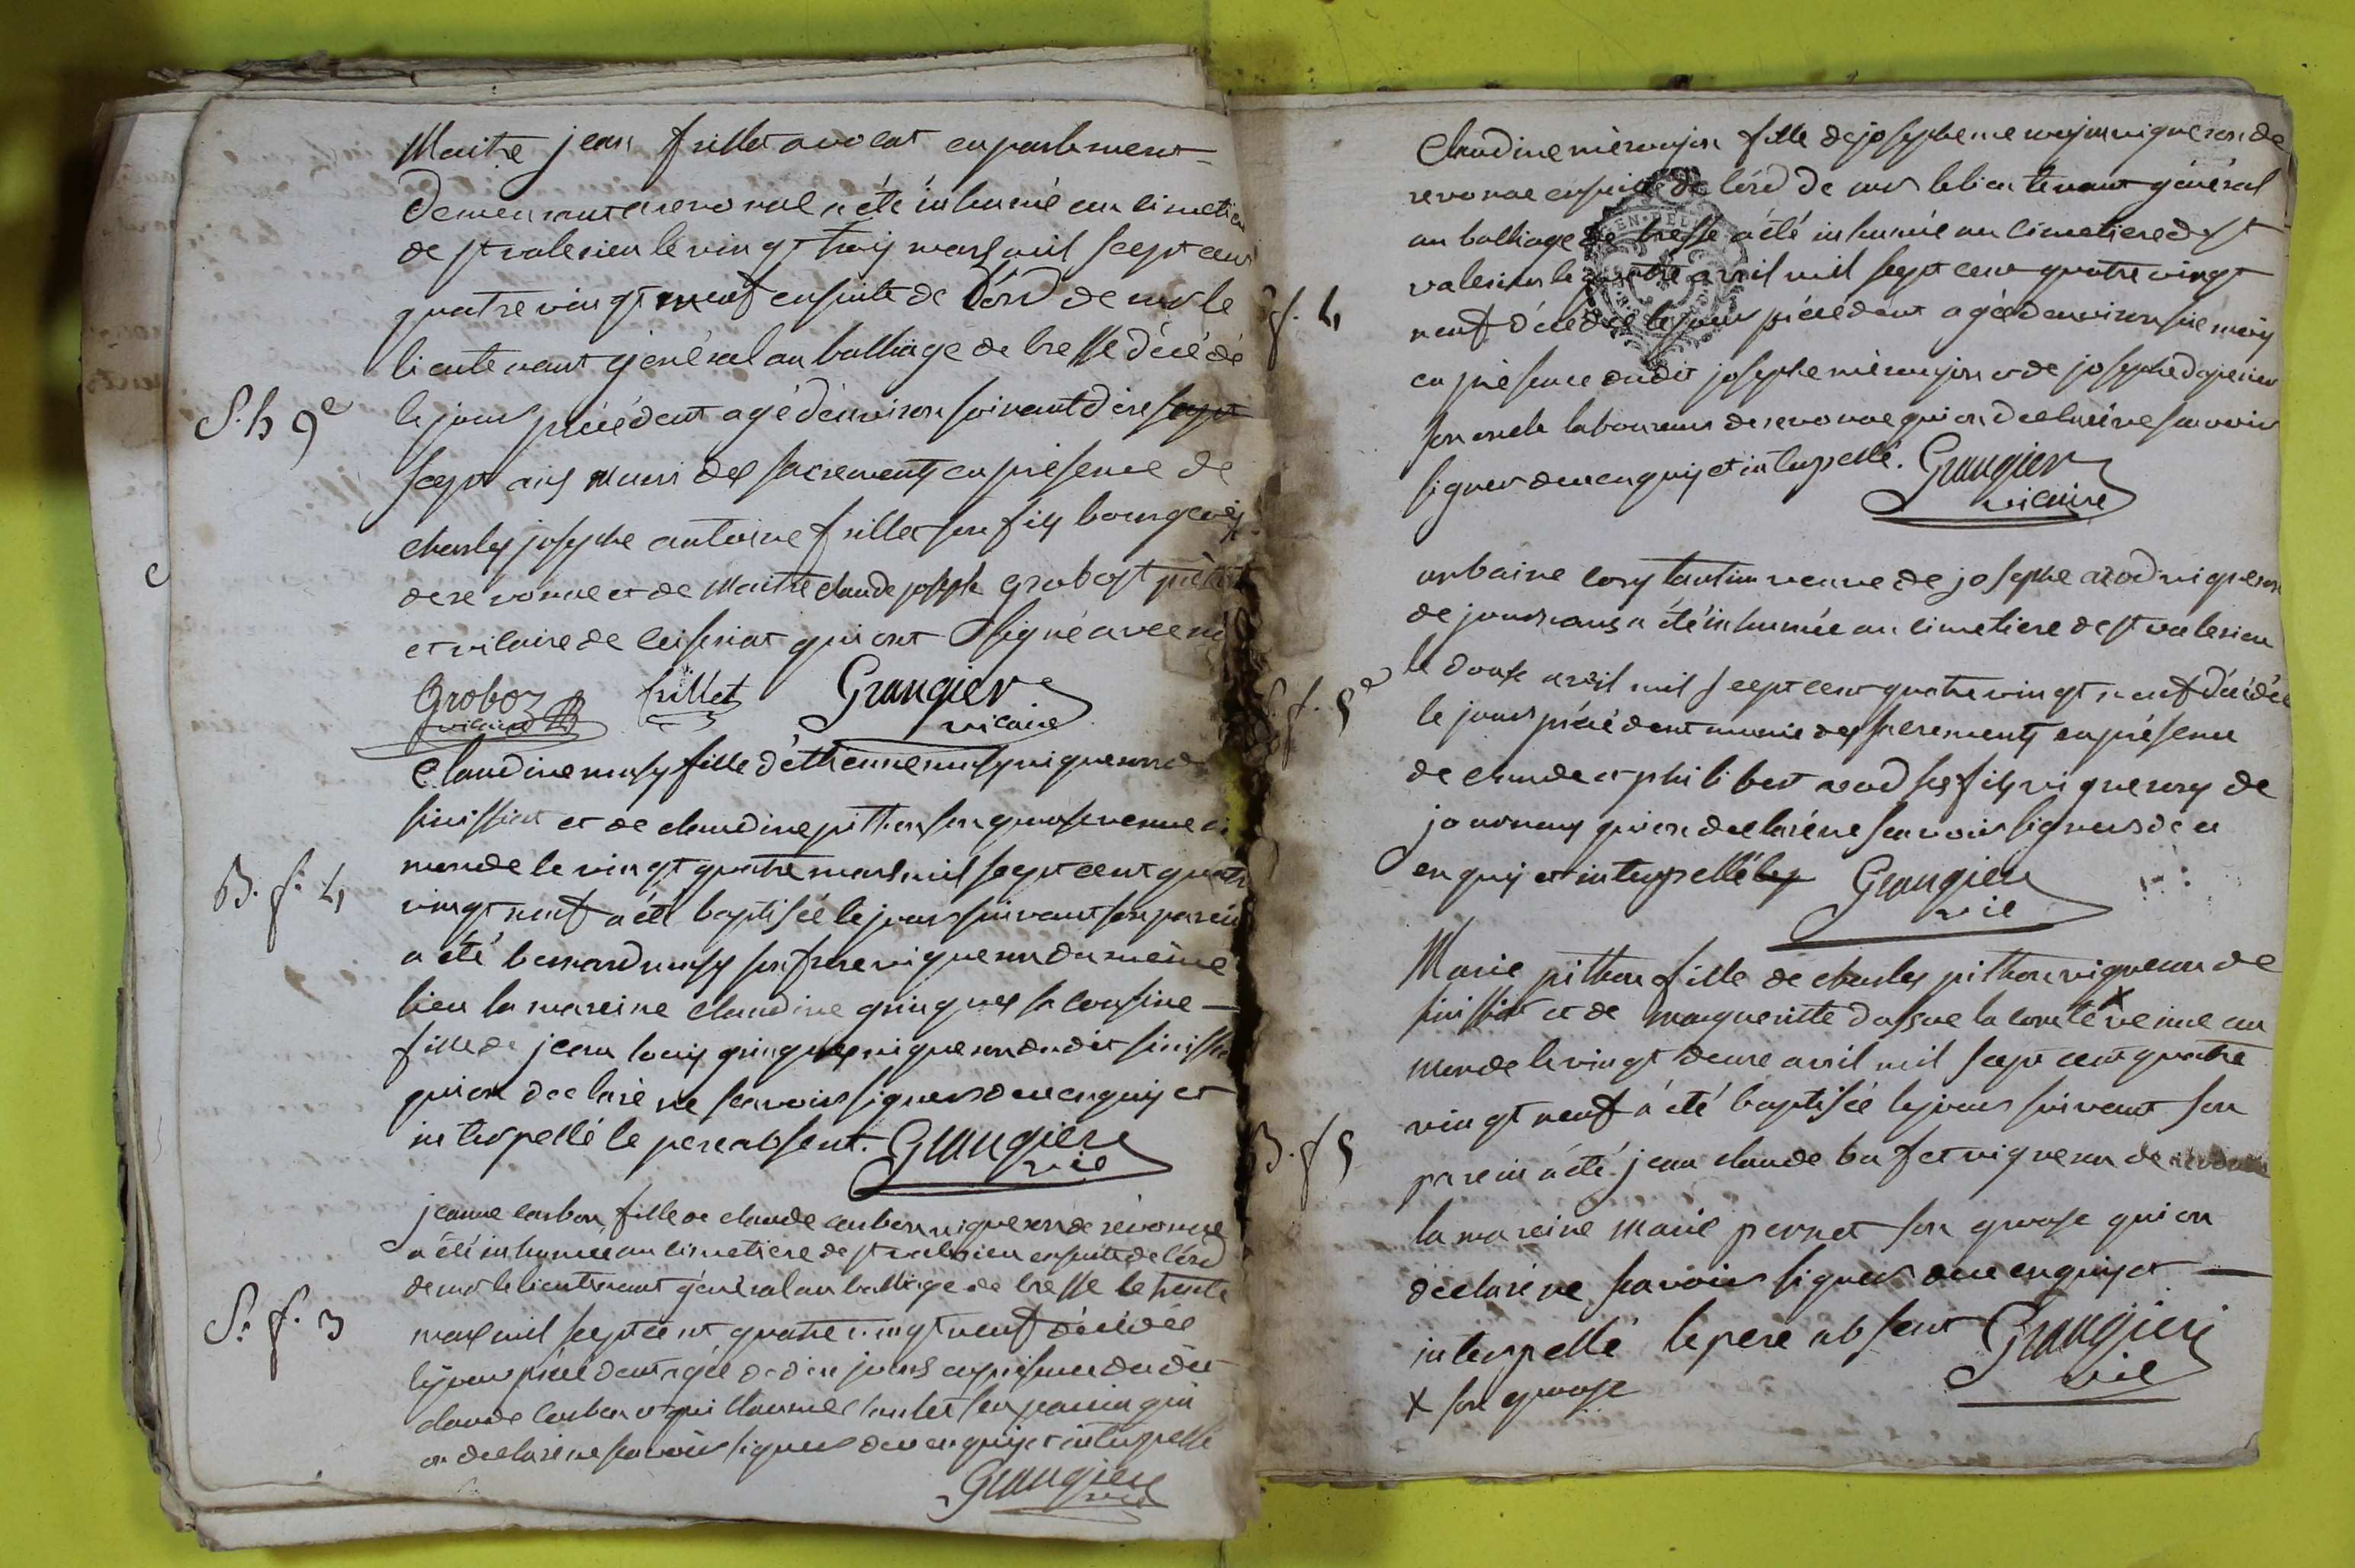 Maitre jean frillet avocat en parlement
demeurant a revonnae a été inhumé au cimetiere
de st valerien le vingt trois mars mil sept cent
quatre vingt neuf ensuite de l'ord de mr le
lieutenant général au balliage de bresse décédé
S. h 9e
le jour précédent agé d'environ soixante dix sept
sept ans muni des sacrements en présence de
charles josephe antoine frillet son fils bourgeois
de revonnae et de Maitre claude joseph grobozt prêtre
et vicaire de ceiseriat qui ont signé avec
Groboz frillet Grangier
vicaire vicaire
Claudine musy fille d'éthienne musy vigneron de
sinissiat et de claudine pitthon son epouse venue au
B. f. 4
monde le vingt quatre mars mil sept cent quatre
vingt neuf a été baptisée le jour suivant son parein
a été bernard musy son frere vigneron du même
lieu la mareine claudine gringoz sa cousine
fille de jean louis vigneron dudit
qui on déclaré ne scavoir signer deue enquis et
interpellé le pere absent. Grangier
vic
jeanne carbon fille de claude carbon vigneron de revonnae
a été inhumée au cimetiere de st valerien ensuite de l'ord
de mr le lieutenant général au balliage de bresse le trente
S. f. 3
mars mil sept cent quatre vingt neuf décédée
le jour précédent agée de dix jours en présence dudit
claude carbon et son parein qui
on déclaré ne scavoir signer deue enquis et interpellé
Grangier
vic
Claudine mérmyon fille de josephe mermyon vigneron de
revonnae ensuite de l'ord de mr le lieutenant général
au balliage de bresse a été inhumée au cimetiere de st
valerien le quatre avril mil sept cent quatre vingt
S. f. 4
neuf décédée le jour précédent agée d'environ six mois
en présence dudit josephe mérmyon et de josephe
son oncle laboureur de revonnae qui on déclaré ne scavoir
signer deue enquis et interpellé. Grangier
vicaire
urbaine constantin veuve de josephe arod vigneron
de journans a été inhumée au cimetiere de st valerien
S. f. 5e
le douze avril mil sept cent quatre vingt neuf décédée
le jour précédent munie des sacrements en présence
de claude et philibert arod ses fils vignerons de
journans qui on déclaré ne scavoir signer de ce
enquis et interpellé Grangier
vic
Marie pitthon fille de charles pitthon vigneron de
sinissiat et de margueritte dassue la comté x venue au
monde le vingt deux avril mil sept cent quatre
vingt neuf a été baptisée le jour suivant son
B. f 5
parein a été jean claude bufet vigneron de revonnae
la mareine marie pernet son epouse qui on
déclaré ne scavoir signer deue enquis et
interpellé le pere absent Grangier
vic
x son epouse